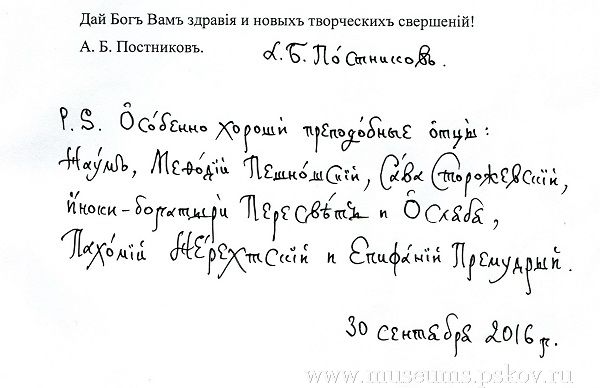 Дай Богъ Вамъ здравія и новыхъ творческихъ свершеній!
А. Б. Постниковъ.
А. Б. Постниковъ.
P. S. Осо́бенно хороши́ преподо́бные ѻтцы̀:
Нау́мъ, Меѳо́дїй Пешно́шскїй, Са́ва Сторожевскїй,
и́ноки-богатырѝ Пересвѣ́тъ и Ѻслѧбѧ,
Пахо́мїй Не́рехтскїй и Епифа́нїй Премудрый.
30 сентября 2016 г.
www.museums.pskov.ru